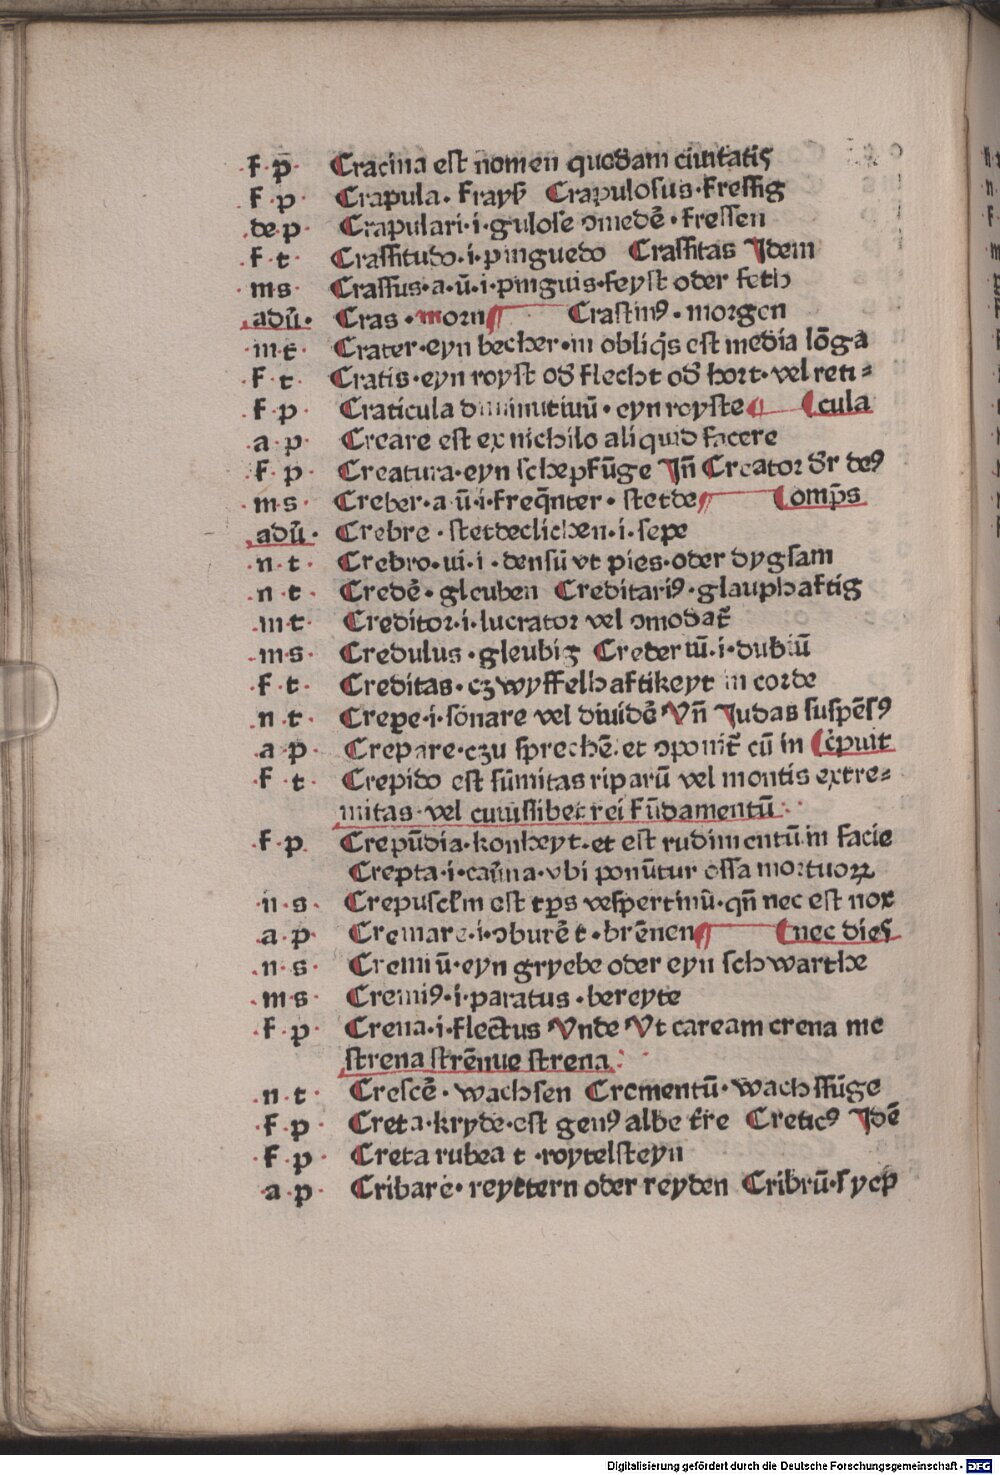 f·p̄· Cracina est nomen quodam ciuitatis
·f·p Crapula· frayß Crapulosus·fressig
·de·p· Crapulari·i·gulose ɔmedē·fressen
·f·t· Crassitudo·i·pinguedo Crassitas Jdem
·m·s· Crassus·a·ū·i·pinguis·feyst oder feth
·adū· Cras·morn Crastinꝰ·morgen
·m·t· Crater·eyn becher·in obliqis est media lōga
·f·t· Cratis·eyn royst od flecht od hort·vel reti⸗
·f·p· Craticula diminutiuū·eyn royste cula
·a·p· Creare est ex nichilo aliquid facere
·f·p· Creatura·eyn schepfūge Jn̄ Creator dr deꝰ
·m·s· Creber·a·ū·i·freq̄nter·stetde omp̄s
·adū· Crebre·stetdeclichen·i·sepe
·n·t· Crebro·ui·i·densū vt pies·oder dygsam
·n·t· Credē·gleuben Creditariꝰ·glauphaftig
·m·t· Creditor·i·lucrator vel ɔmodat̄
·m·s· Credulus·gleubig Crederiū·i·dubiū
·f·t· Creditas·czwyffelhaftikeyt in corde
·n·t· Crepe·i·sonare vel diuidē Vn̄ Judas suspēsꝰ
·a·p· Crepare·czu sprechē·et ɔponit̄ cū in c̄puit
·f·t· Crepido est sūmitas riparū vel montis extre⸗
mitas·vel cuiuslibet rei fūdamentū
·f·p· Crepūdia·konheyt·et est rudimentū in facie
Crepta·i·cauīna·vbi ponūtur ossa mortuoꝝ
·n·s· Crepusclm est tp̄s vespertinū·qn̄ nec est nox
·a·p· Cremare·i·ɔburē t·brēnen nec dies
·n·s· Cremiū·eyn gryebe oder eyn schwarthe
·m·s· Cremiꝰ·i·paratus·bereyte
·f·p· Crena·i·flectus Vnde Vt caream crena me
strena strēnue strena
·n·t· Crescē·wachsen Crementū·wachssūge
·f·p· Creta·kryde·est genꝰ albe t̄re Creticꝰ Jdē
·f·p· Creta rubea t·roytelsteyn
·a·p· Cribare·reyttern oder reyden Cribrū·syep
Digitalisierung gefördert durch die Deutsche Forschungsgemeinschaft · DFG